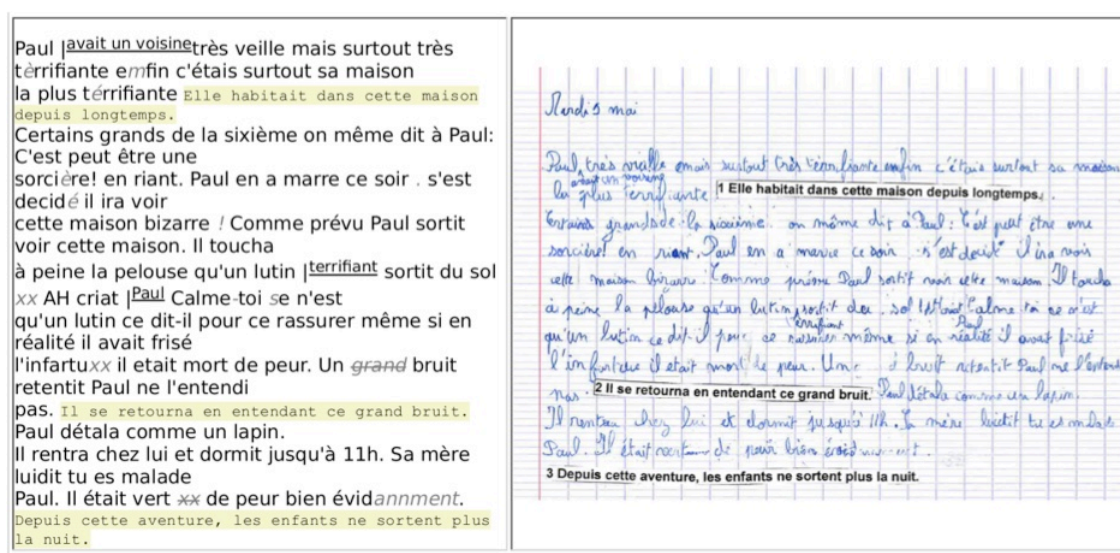 Paul |avait un voisine très veille mais surtout très
tèrrifiante emfin c'étais surtout sa maison
la plus térrifiante Elle habitait dans cette maison
depuis longtemps.
Certains grands de la sixième on même dit à Paul:
C'est peut être une
sorcière! en riant. Paul en a marre ce soir . s'est
decidé il ira voir
cette maison bizarre ! Comme prévu Paul sortit
voir cette maison. Il toucha
à peine la pelouse qu'un lutin |terrifiant sortit du sol
xx AH criat |Paul Calme-toi se n'est
qu'un lutin ce dit-il pour ce rassurer même si en
réalité il avait frisé
l'infartuxx il etait mort de peur. Un grand bruit
retentit Paul ne l'entendi
pas. Il se retourna en entendant ce grand bruit.
Paul détala comme un lapin.
Il rentra chez lui et dormit jusqu'à 11h. Sa mère
luidit tu es malade
Paul. Il était vert xx de peur bien évidannment.
Depuis cette aventure, les enfants ne sortent plus
la nuit.
mai
Paul très veille mais surtout très terrifiante emfin c'étais surtout sa maison
avait un voisine
la plus terrifiante 1 Elle habitait dans cette maison depuis longtemps.
Certains grands de la sixième on même dit à Paul: C'est peut être une
sorcière! en riant. Paul en a marre ce soir . s'est decidé il ira voir
cette maison bizarre. Comme prévu Paul sortit voir cette maison. Il toucha
à peine la pelouse qu'un lutin sortit du sol Calme toi se n'est
terrifiant Paul
qu'un lutin ce dit-il pour ce rassurer même si en réalité il avait frisé
il etait mort de peur. Un bruit retentit Paul ne l'entendi
pas. 2 Il se retourna en entendant ce grand bruit. Paul détala comme un lapin.
Il rentra chez lui et dormit jusqu'à 11h. Sa mère luidit tu es malade
Paul. Il était vert de peur bien
3 Depuis cette aventure, les enfants ne sortent plus la nuit.